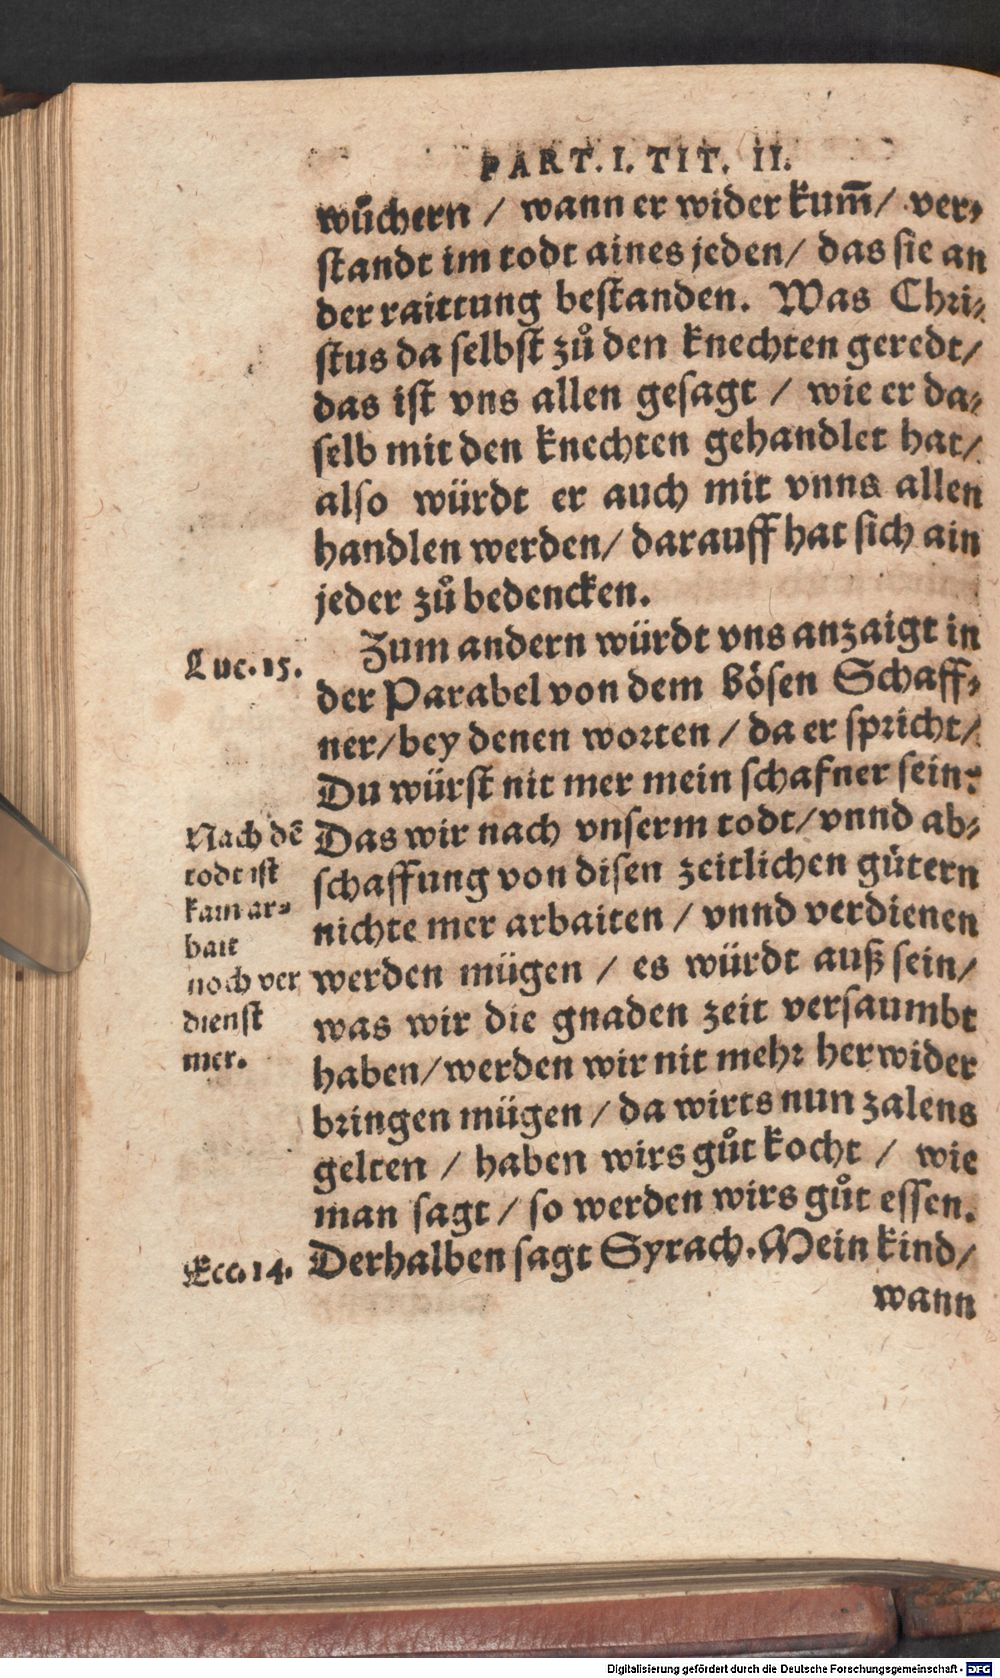 PART. I. TIT. II.
wůchern / wann er wider kum̄ / ver⸗
standt im todt aines jeden / das sie an
der raittung bestanden. Was Chri⸗
stus da selbst zů den knechten geredt /
das ist vns allen gesagt / wie er da⸗
selb mit den knechten gehandlet hat /
also würdt er auch mit vnns allen
handlen werden / darauff hat sich ain
jeder zů bedencken.
Luc. 15.
Zum andern würdt vns anzaigt in
der Parabel von dem bösen Schaff⸗
ner / bey denen worten / da er spricht /
Du würst nit mer mein schafner sein:
Nach dē
todt ist
kain ar⸗
bait
noch ver
dienst
mer.
Das wir nach vnserm todt / vnnd ab⸗
schaffung von disen zeitlichen gütern
nichte mer arbaiten / vnnd verdienen
werden mügen / es würdt auß sein /
was wir die gnaden zeit versaumbt
haben / werden wir nit mehr herwider
bringen mügen / da wirts nun zalens
gelten / haben wirs gůt kocht / wie
man sagt / so werden wirs gůt essen.
Ecc. 14.
Derhalben sagt Syrach. Mein kind /
wann
Digitalisierung gefördert durch die Deutsche Forschungsgemeinschaft - DFG